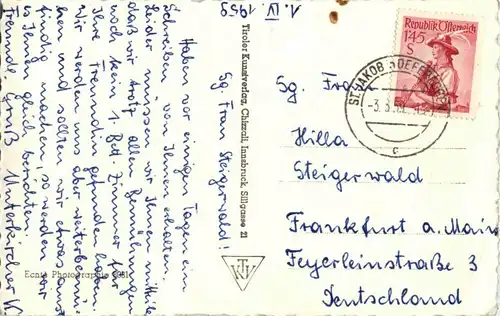 1. IV. 1959
Sg. Frau Steigerwald!
Haben vor einigen Tagen ein
Schreiben von Ihnen erhalten.
Leider müssen wir Ihnen mitteilen
daß wir trotz allen Bemühungen
noch kein 1. Bett Zimmer für
Ihre Freundin gefunden haben.
Wir werden uns aber weiterbemü-
hen und sollten wir etwas aus-
findig machen, so werden wir
es Ihnen gleich berichten.
Freundl. Gruß Unterkircher V
Tiroler Kunstverlag, Chizzali, Innsbruck, Sillgasse 21
TKV
Echte Photographie
Republik Österreich
1.45
S
ST. JAKOB
c
Sg. Frau
Hilla
Steigerwald
Frankfurt a. Main
Feyerleinstraße 3
Deutschland